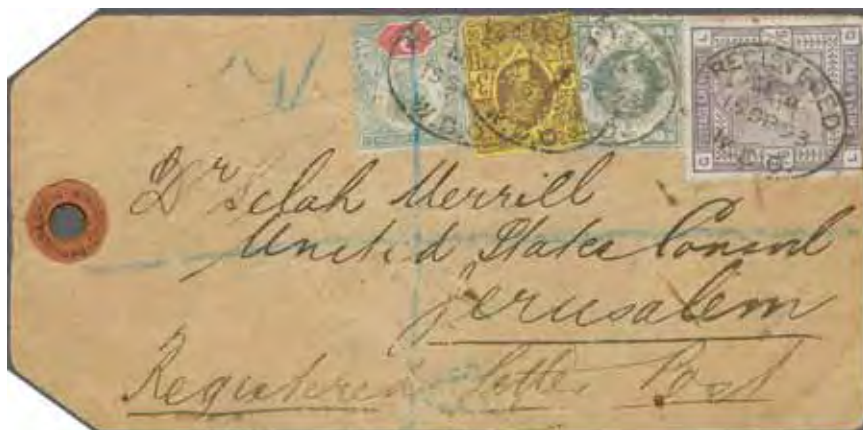 REGISTERED
Dr Selah Merrill
United States Consul
Jerusalem
Registered Letter Post